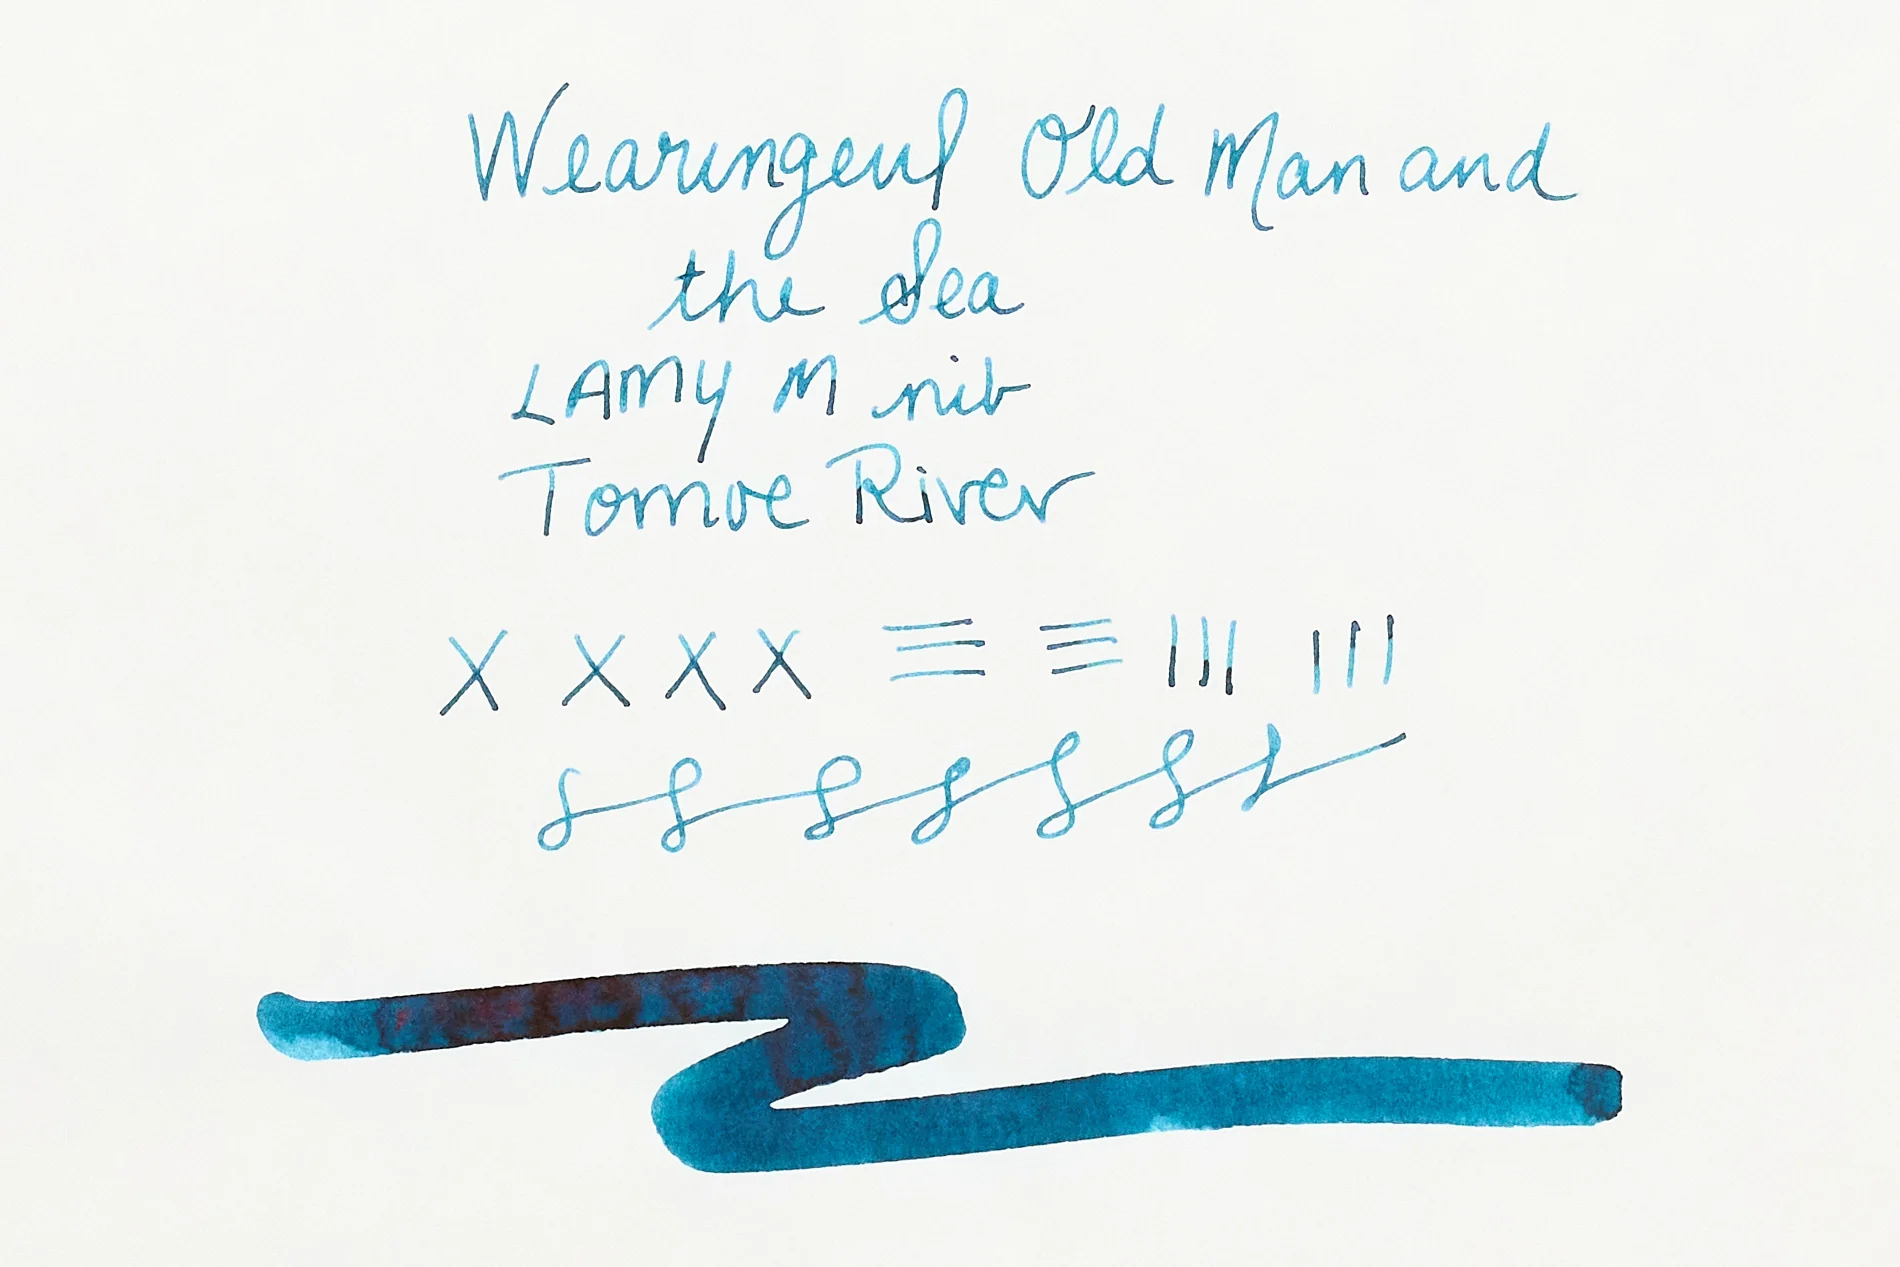 Wearingeul Old Man and
the Sea
LAMY M nib
Tomoe River
X X X X